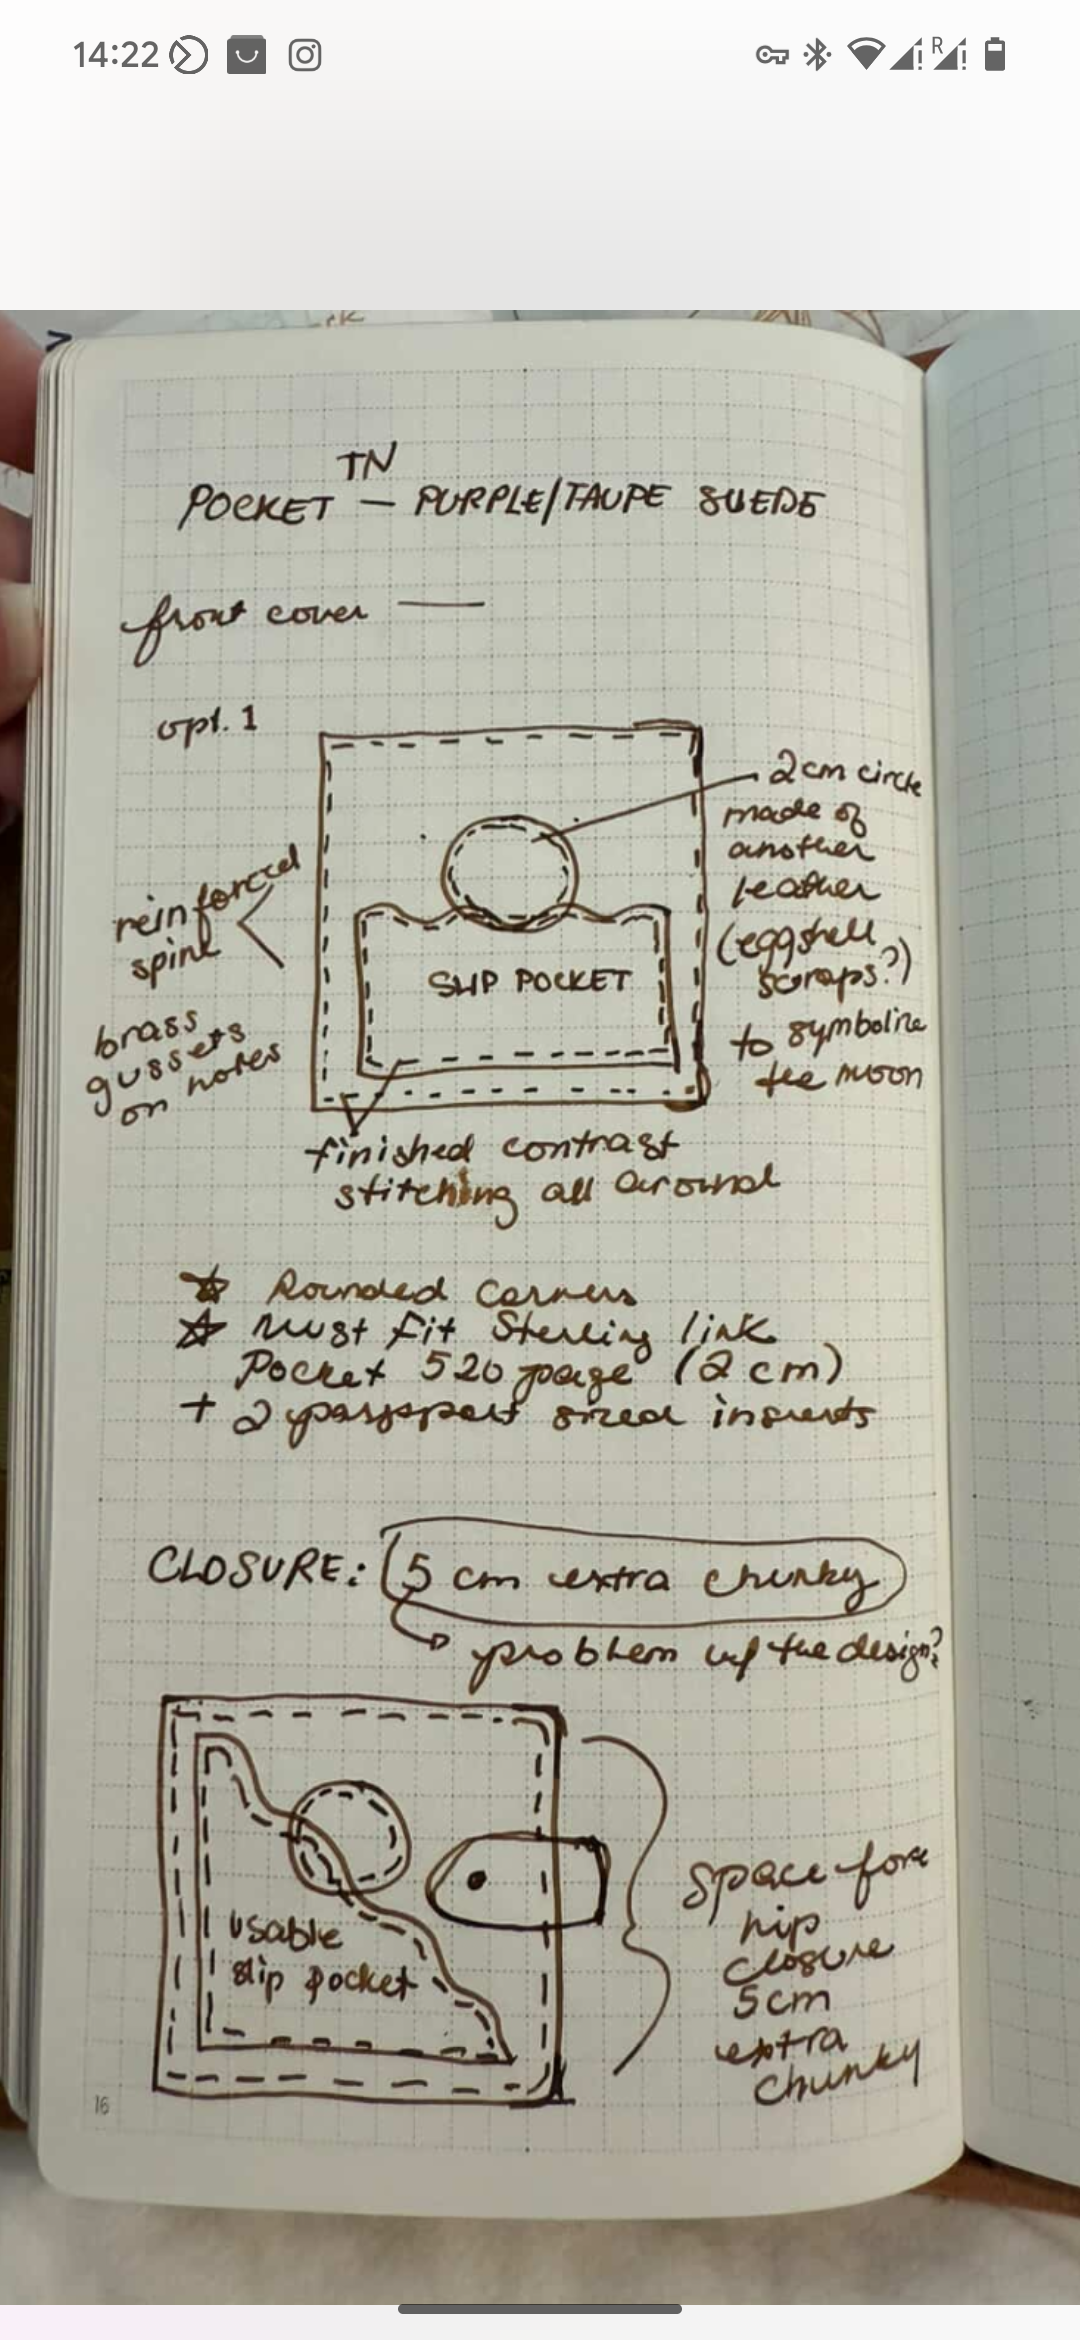 14:22
R
TN
POCKET — PURPLE/TAUPE SUEDE
front cover —
opt. 1
2cm circle
made of
another
leather
(eggshell
scraps?)
to symbolize
the moon
reinforced
spine
brass
gussets
on notes
SLIP POCKET
finished contrast
stitching all around
☆ Rounded corners
☆ Must fit Sterling link
Pocket 520 page (2 cm)
+ 2 passport sized inserts
CLOSURE: 5 cm extra chunky
problem w/ the design?
usable
slip pocket
Space for
nip
closure
5cm
extra
chunky
16